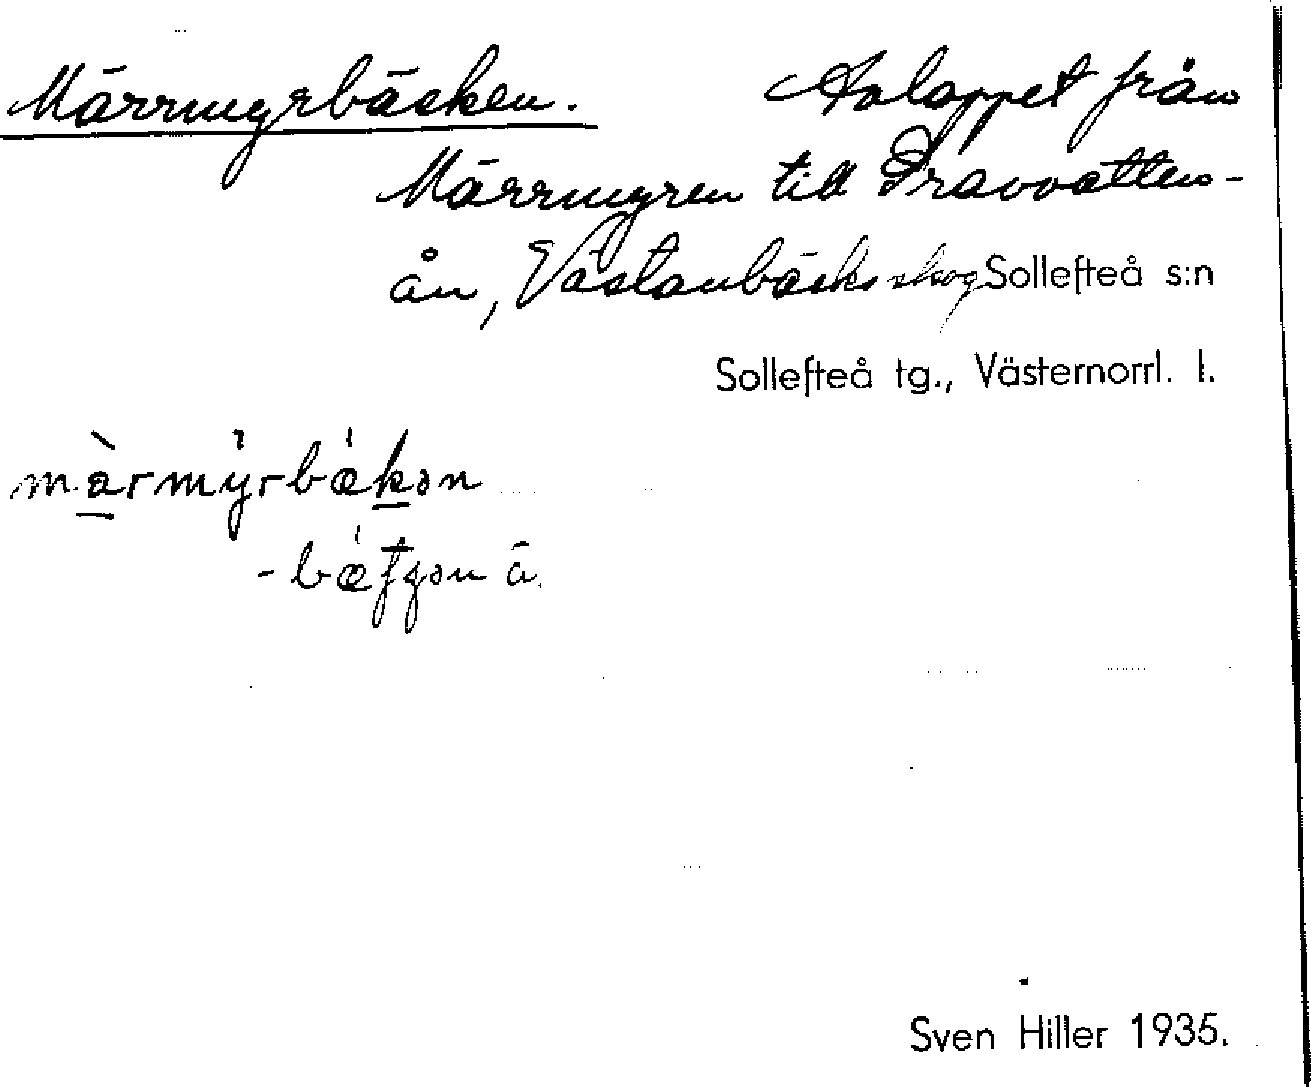 Märrmyrbäcken. Avloppet från
Märrmyren till Gravvattens-
ån, Västanbäcks skog Sollefteå s:n
Sollefteå tg., Västernorrl. l.
màrmy̍rbæ̍kən
-bæ̍tʃən ä.
Sven Hiller 1935.